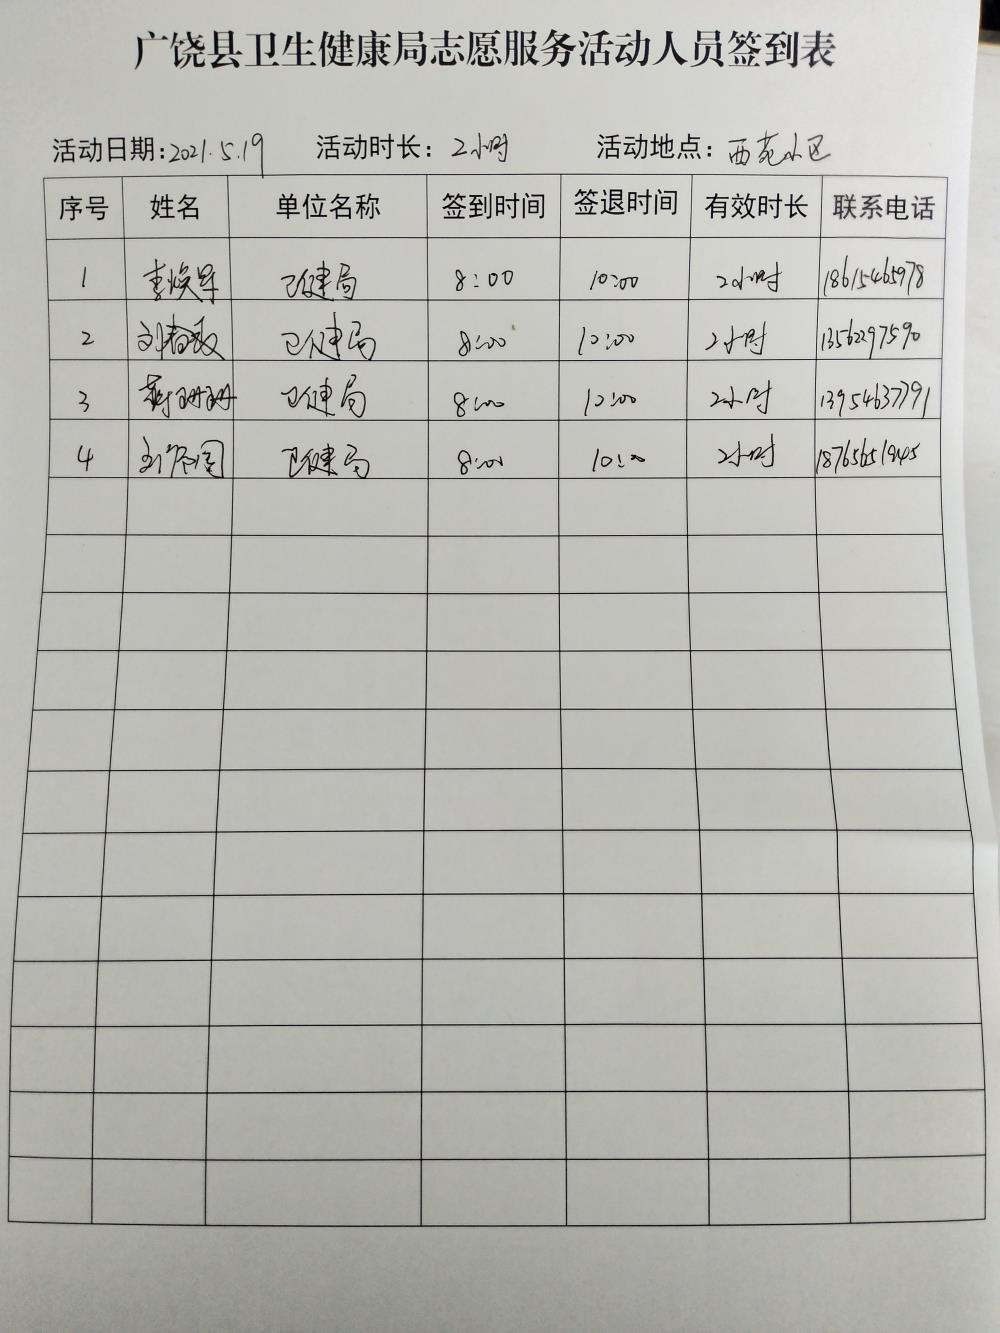 广饶县卫生健康局志愿服务活动人员签到表
活动日期:2021.5.19 活动时长:2小时 活动地点:西苑小区
序号 姓名 单位名称 签到时间 签退时间 有效时长 联系电话
1 李焕军 卫健局 8:00 10:00 2小时 18615465978
2 刘春 卫健局 8:00 10:00 2小时 13562297590
3 珊珊 卫健局 8:00 10:00 2小时 13954637791
4 卫健局 8:00 10:00 2小时